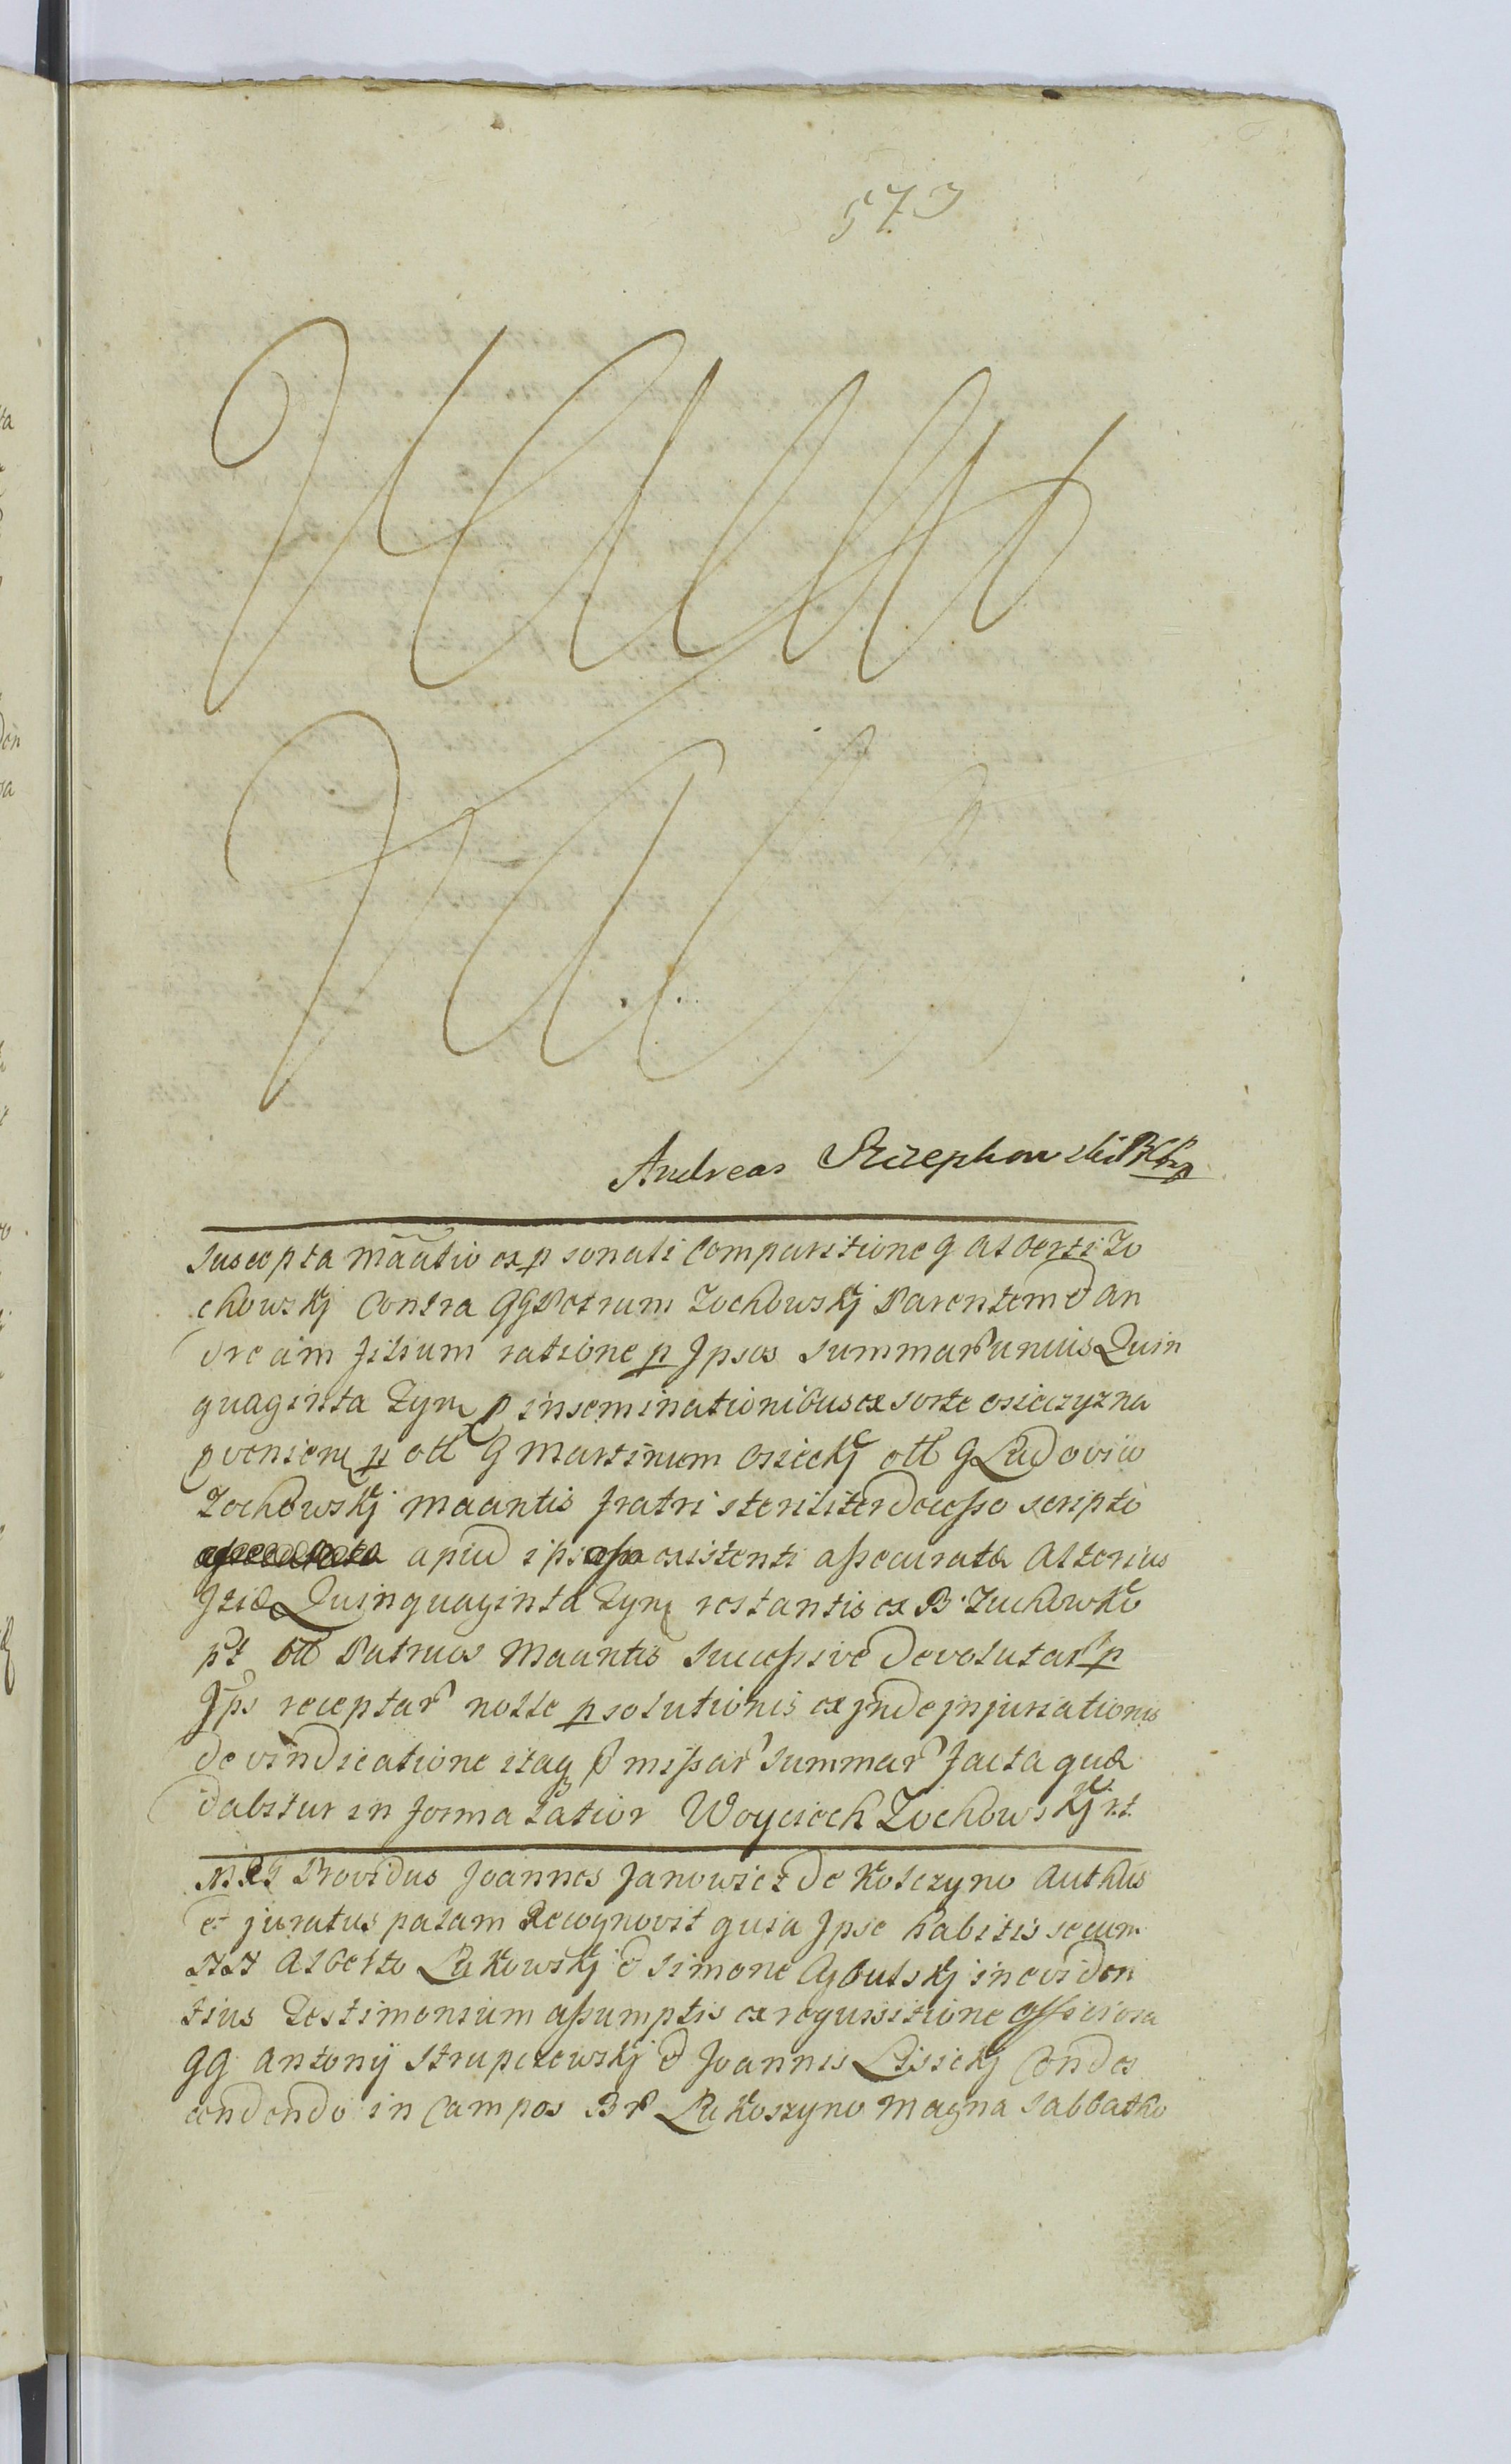 573
Andreas
Suscepta mãatio ex p sonali Comparitione G Alberti Zo
chowskj Contra GG Petrum Zochowskj Parentem et An
dream filium ratione p Ipsos summar unius Quin
quaginta Tynf p inseminationibus ex sorte osieczyzna
pvenien p oll G Martinum Osieckj oll G Ludovico
Zochowskj Maantis fratri steriliter decesso scripto
apud existenti assecurata Alterius
Quinquaginta Tynf restantis ex B. Zuchowko
pt oll Patruos Maantis Successive Devolutar p
Ips receptar nolle p solutionis ex inde injuriationis
de vindicatione itaq p missar Summar facta quæ
dabitur in forma latior Woyciech Zochowskj
Providus Joannes Janowicz de Kolczyno Authus
et juratus palam Recognovit quia Ipse habitis secum
NN Alberto Lukowskj et Simone in eviden
tius Testimonium assumptis ex requisitione officiosa
GG Antonij Strupczewskj et Joannis Lisickj Condes
cendendo in Campos Br Lukoszyno Magna Sabbatho